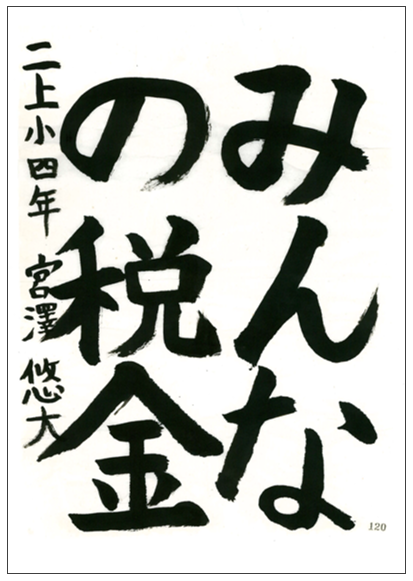 みんな
の税金
二上小四年 宮澤悠大
120